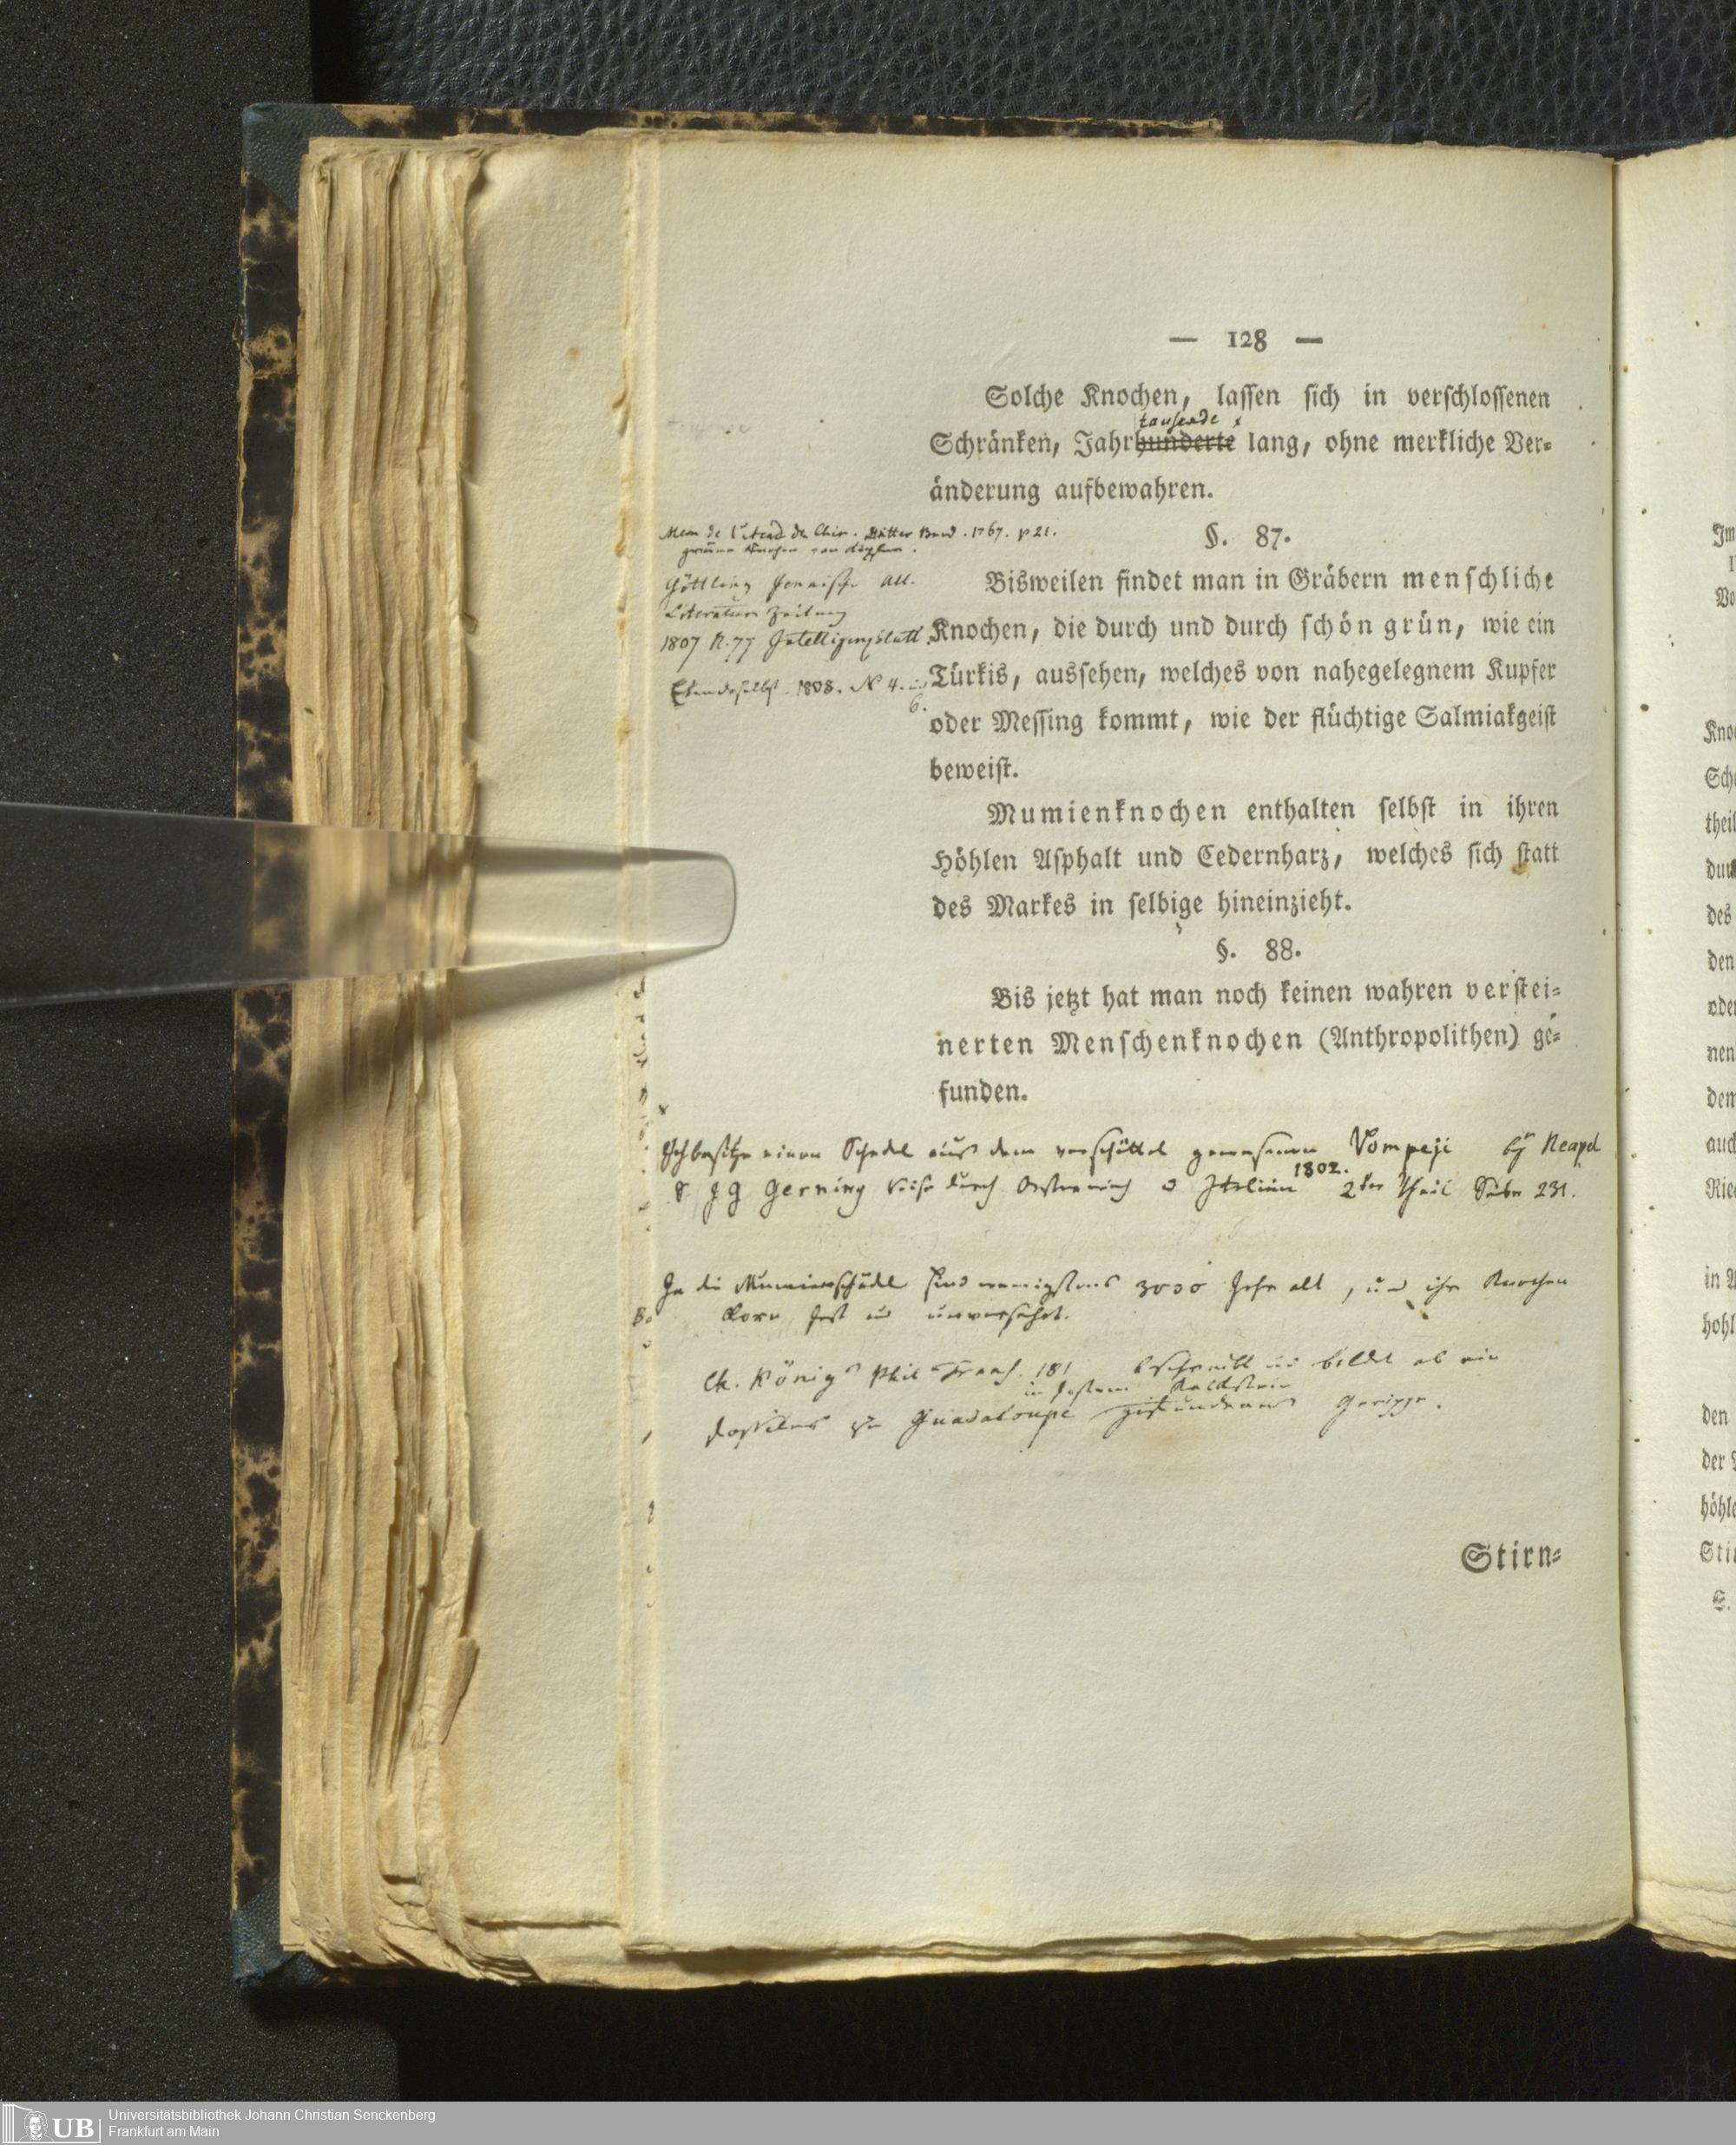 — 128 —
Solche Knochen, laſſen ſich in verſchloſſenen
tauſende x
Schränken, Jahrhunderte lang, ohne merkliche Ver-
änderung aufbewahren.
Mem de l'Acad de Chir. 1767. p 21.
§. 87.
Göttling Jenaiſche All.
Literatur Zeitung
1807 N. 77 Intelligenzblatt.
Ebendaſelbſt. 1808. N 4.
6.
Bisweilen findet man in Gräbern menſchliche
Knochen, die durch und durch ſchön grün, wie ein
Türkis, ausſehen, welches von nahegelegnem Kupfer
oder Meſſing kommt, wie der flüchtige Salmiakgeiſt
beweiſt.
Mumienknochen enthalten ſelbſt in ihren
Höhlen Aſphalt und Cedernharz, welches ſich ſtatt
des Markes in ſelbige hineinzieht.
§. 88.
Bis jetzt hat man noch keinen wahren verſtei-
nerten Menſchenknochen (Anthropolithen) ge-
funden.
x
Ich beſitze einen Schedel aus dem verſchüttet geweſenen Pompeji bÿ Neapel
S. J G Gerning Reiſe durch Oesterreich u Italien 1802. 2ter Theil Seite 231.
Ja die Mumienſchädel ſind wenigſtens 3000 Jahr alt, und ihre Knochen
feſt und unverſehrt.
Ch. König Phil Tranſ. 181 beſchreibt und bildet ab ein
in feſtem Kalkſtein
foſſiles zu Guadaloupe gefundenes Gerippe.
Stirn-
Universitätsbibliothek Johann Christian Senckenberg
Frankfurt am Main
UB